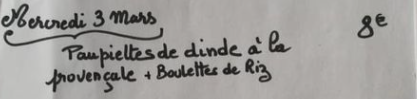 Mercredi 3 Mars 8€
Paupiettes de dinde à la
provençale + Boulettes de Riz